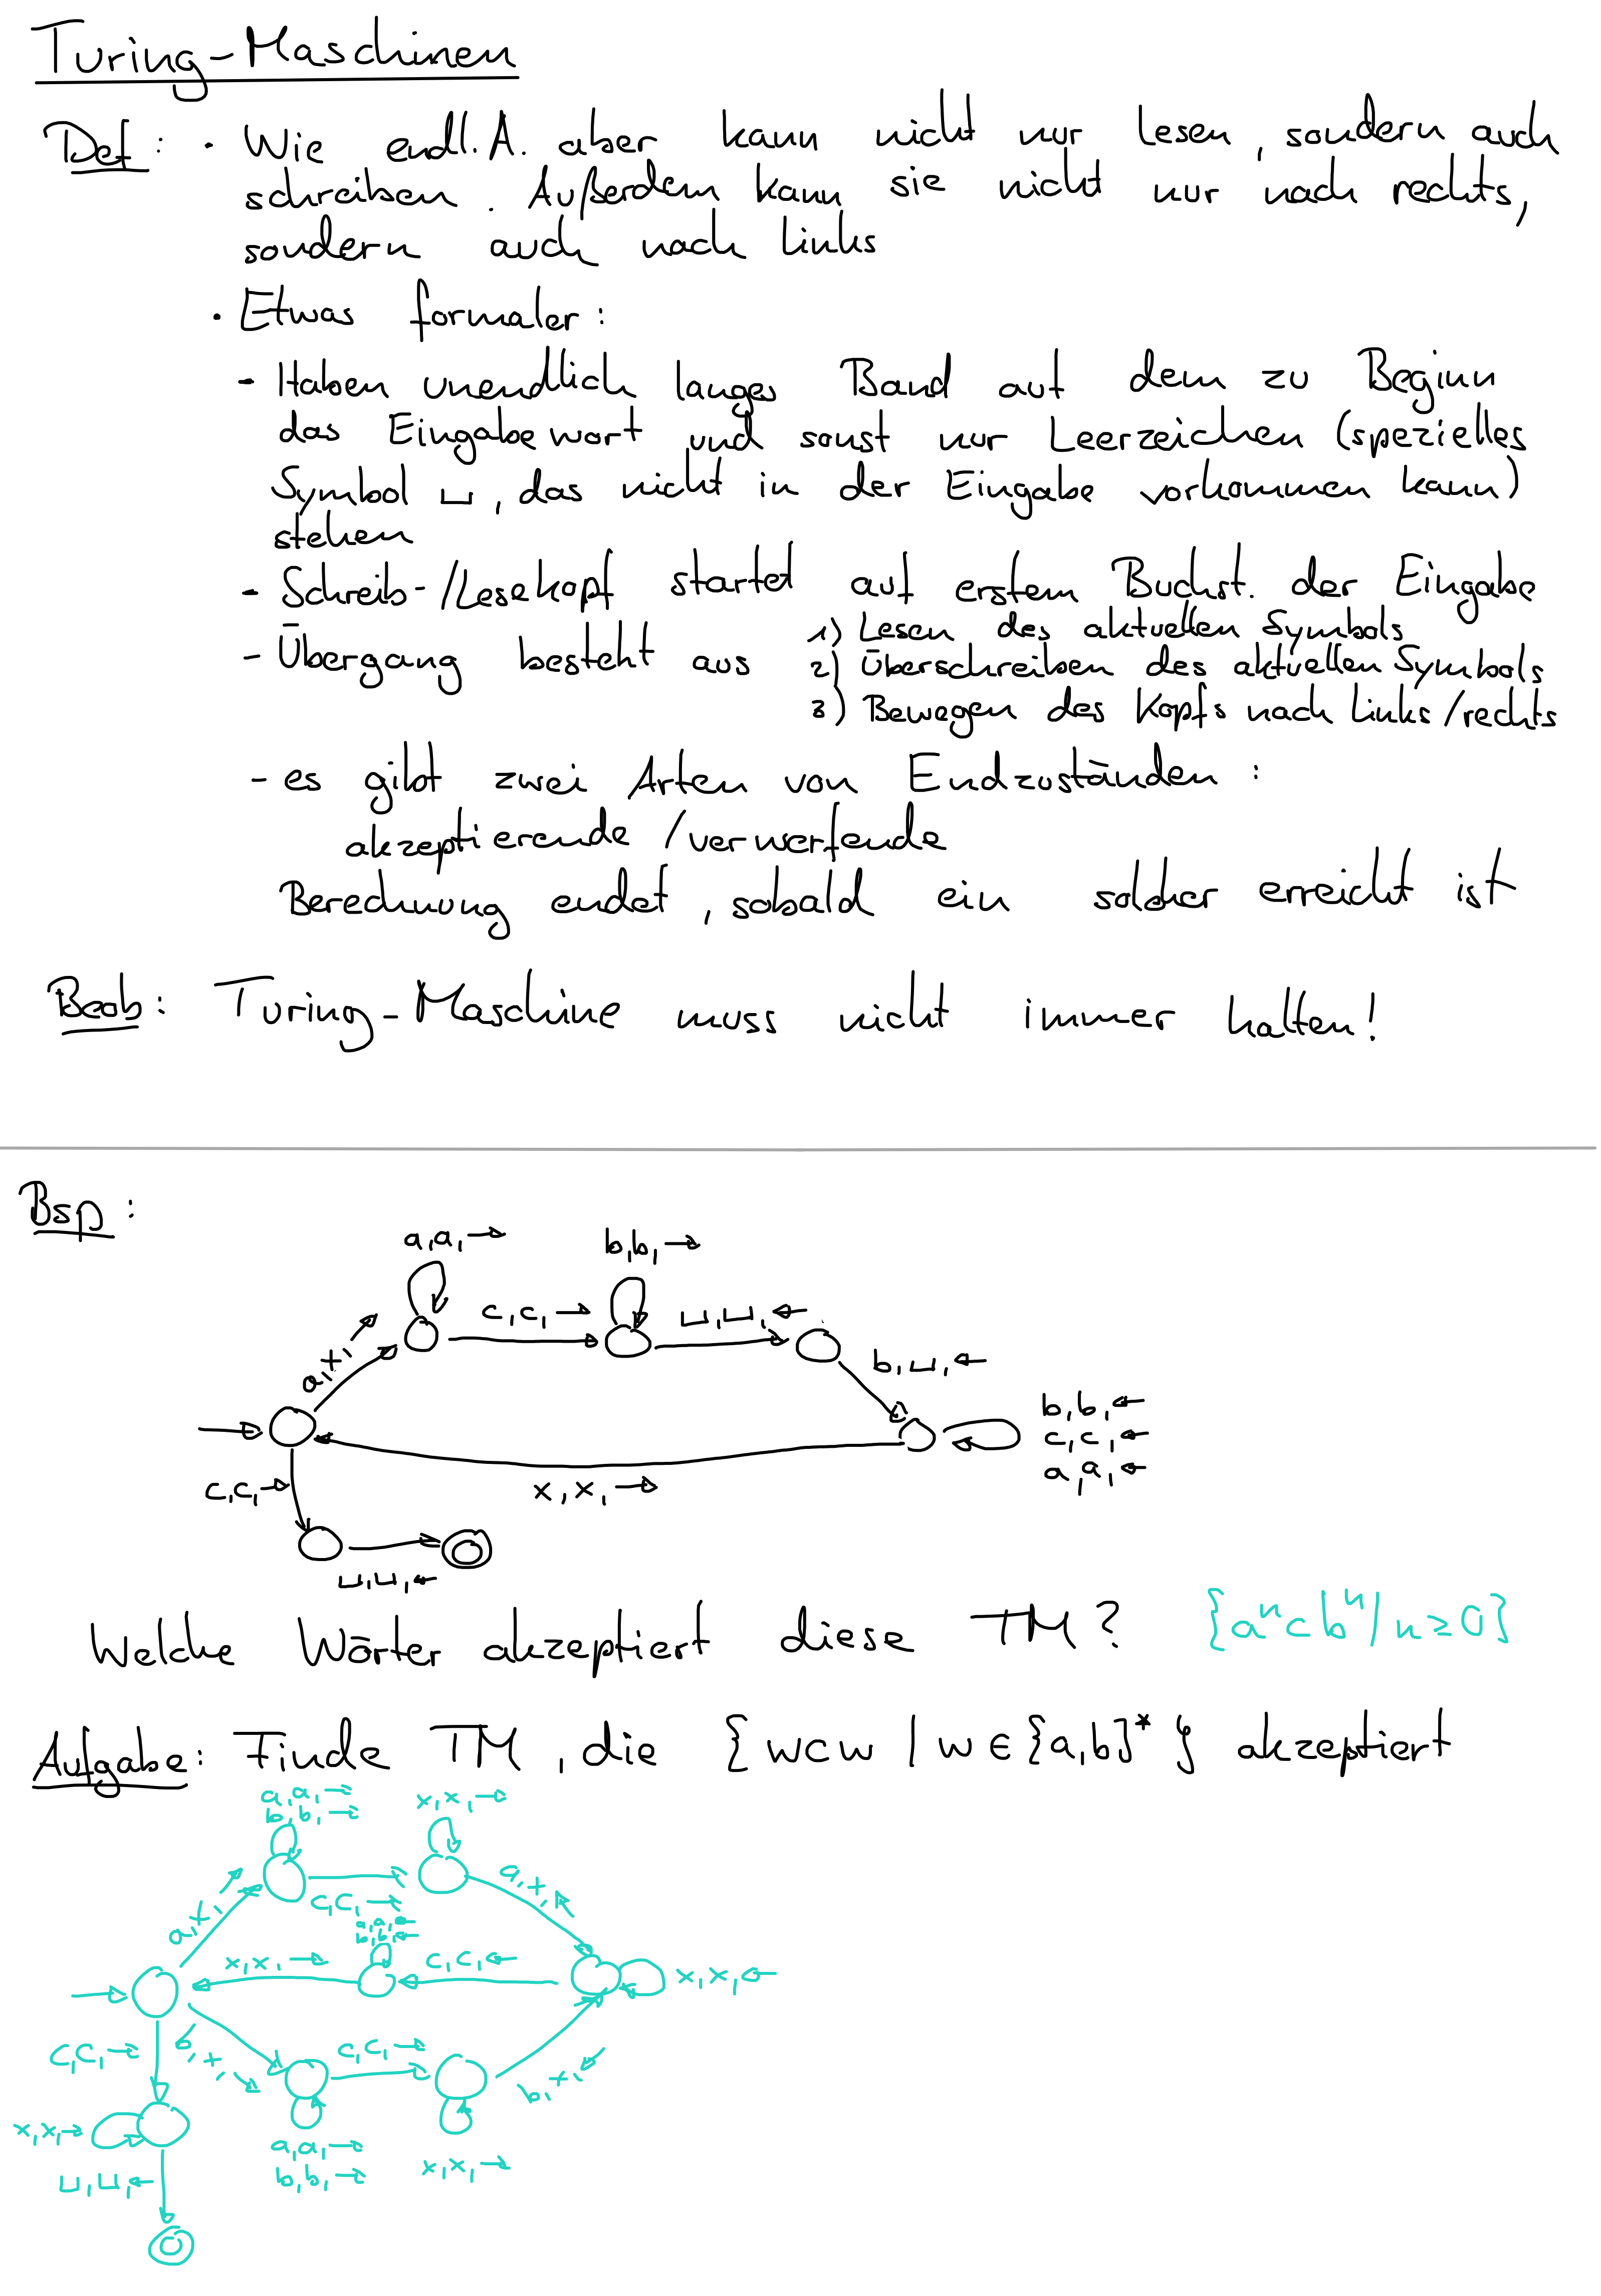 Turing-Maschinen
Def: · Wie endl. A. aber kann nicht nur lesen, sondern auch
schreiben. Außerdem kann sie nicht nur nach rechts,
sondern auch nach links
· Etwas formaler:
- Haben unendlich langes Band auf dem zu Beginn
das Eingabewort und sonst nur Leerzeichen (spezielles
Symbol ⊔, das nicht in der Eingabe vorkommen kann)
stehen
- Schreib-/Lesekopf startet auf erstem Buchst. der Eingabe
- Übergang besteht aus 1) Lesen des aktuellen Symbols
2) Überschreiben des aktuellen Symbols
3) Bewegen des Kopfs nach links/rechts
- es gibt zwei Arten von Endzuständen:
akzeptierende/verwerfende
Berechnung endet, sobald ein solcher erreicht ist
Beob: Turing-Maschine muss nicht immer halten!
Bsp:
a,a,→ b,b,→
c,c,→ ⊔,⊔,←
a,x,→ b,⊔,←
b,b,←
c,c,←
a,a,←
c,c,→ x,x,→
⊔,⊔,←
Welche Wörter akzeptiert diese TM? {aⁿcbⁿ | n≥0}
Aufgabe: Finde TM, die {wcw | w∈{a,b}*} akzeptiert
a,a,→ x,x,→
b,b,→
a,x,→ c,c,→ a,x,←
a,a,←
b,b,←
x,x,→ c,c,← x,x,←
c,c,→ b,x,→ c,c,→ b,x,←
x,x,→
a,a,→ x,x,→
b,b,→
⊔,⊔,←